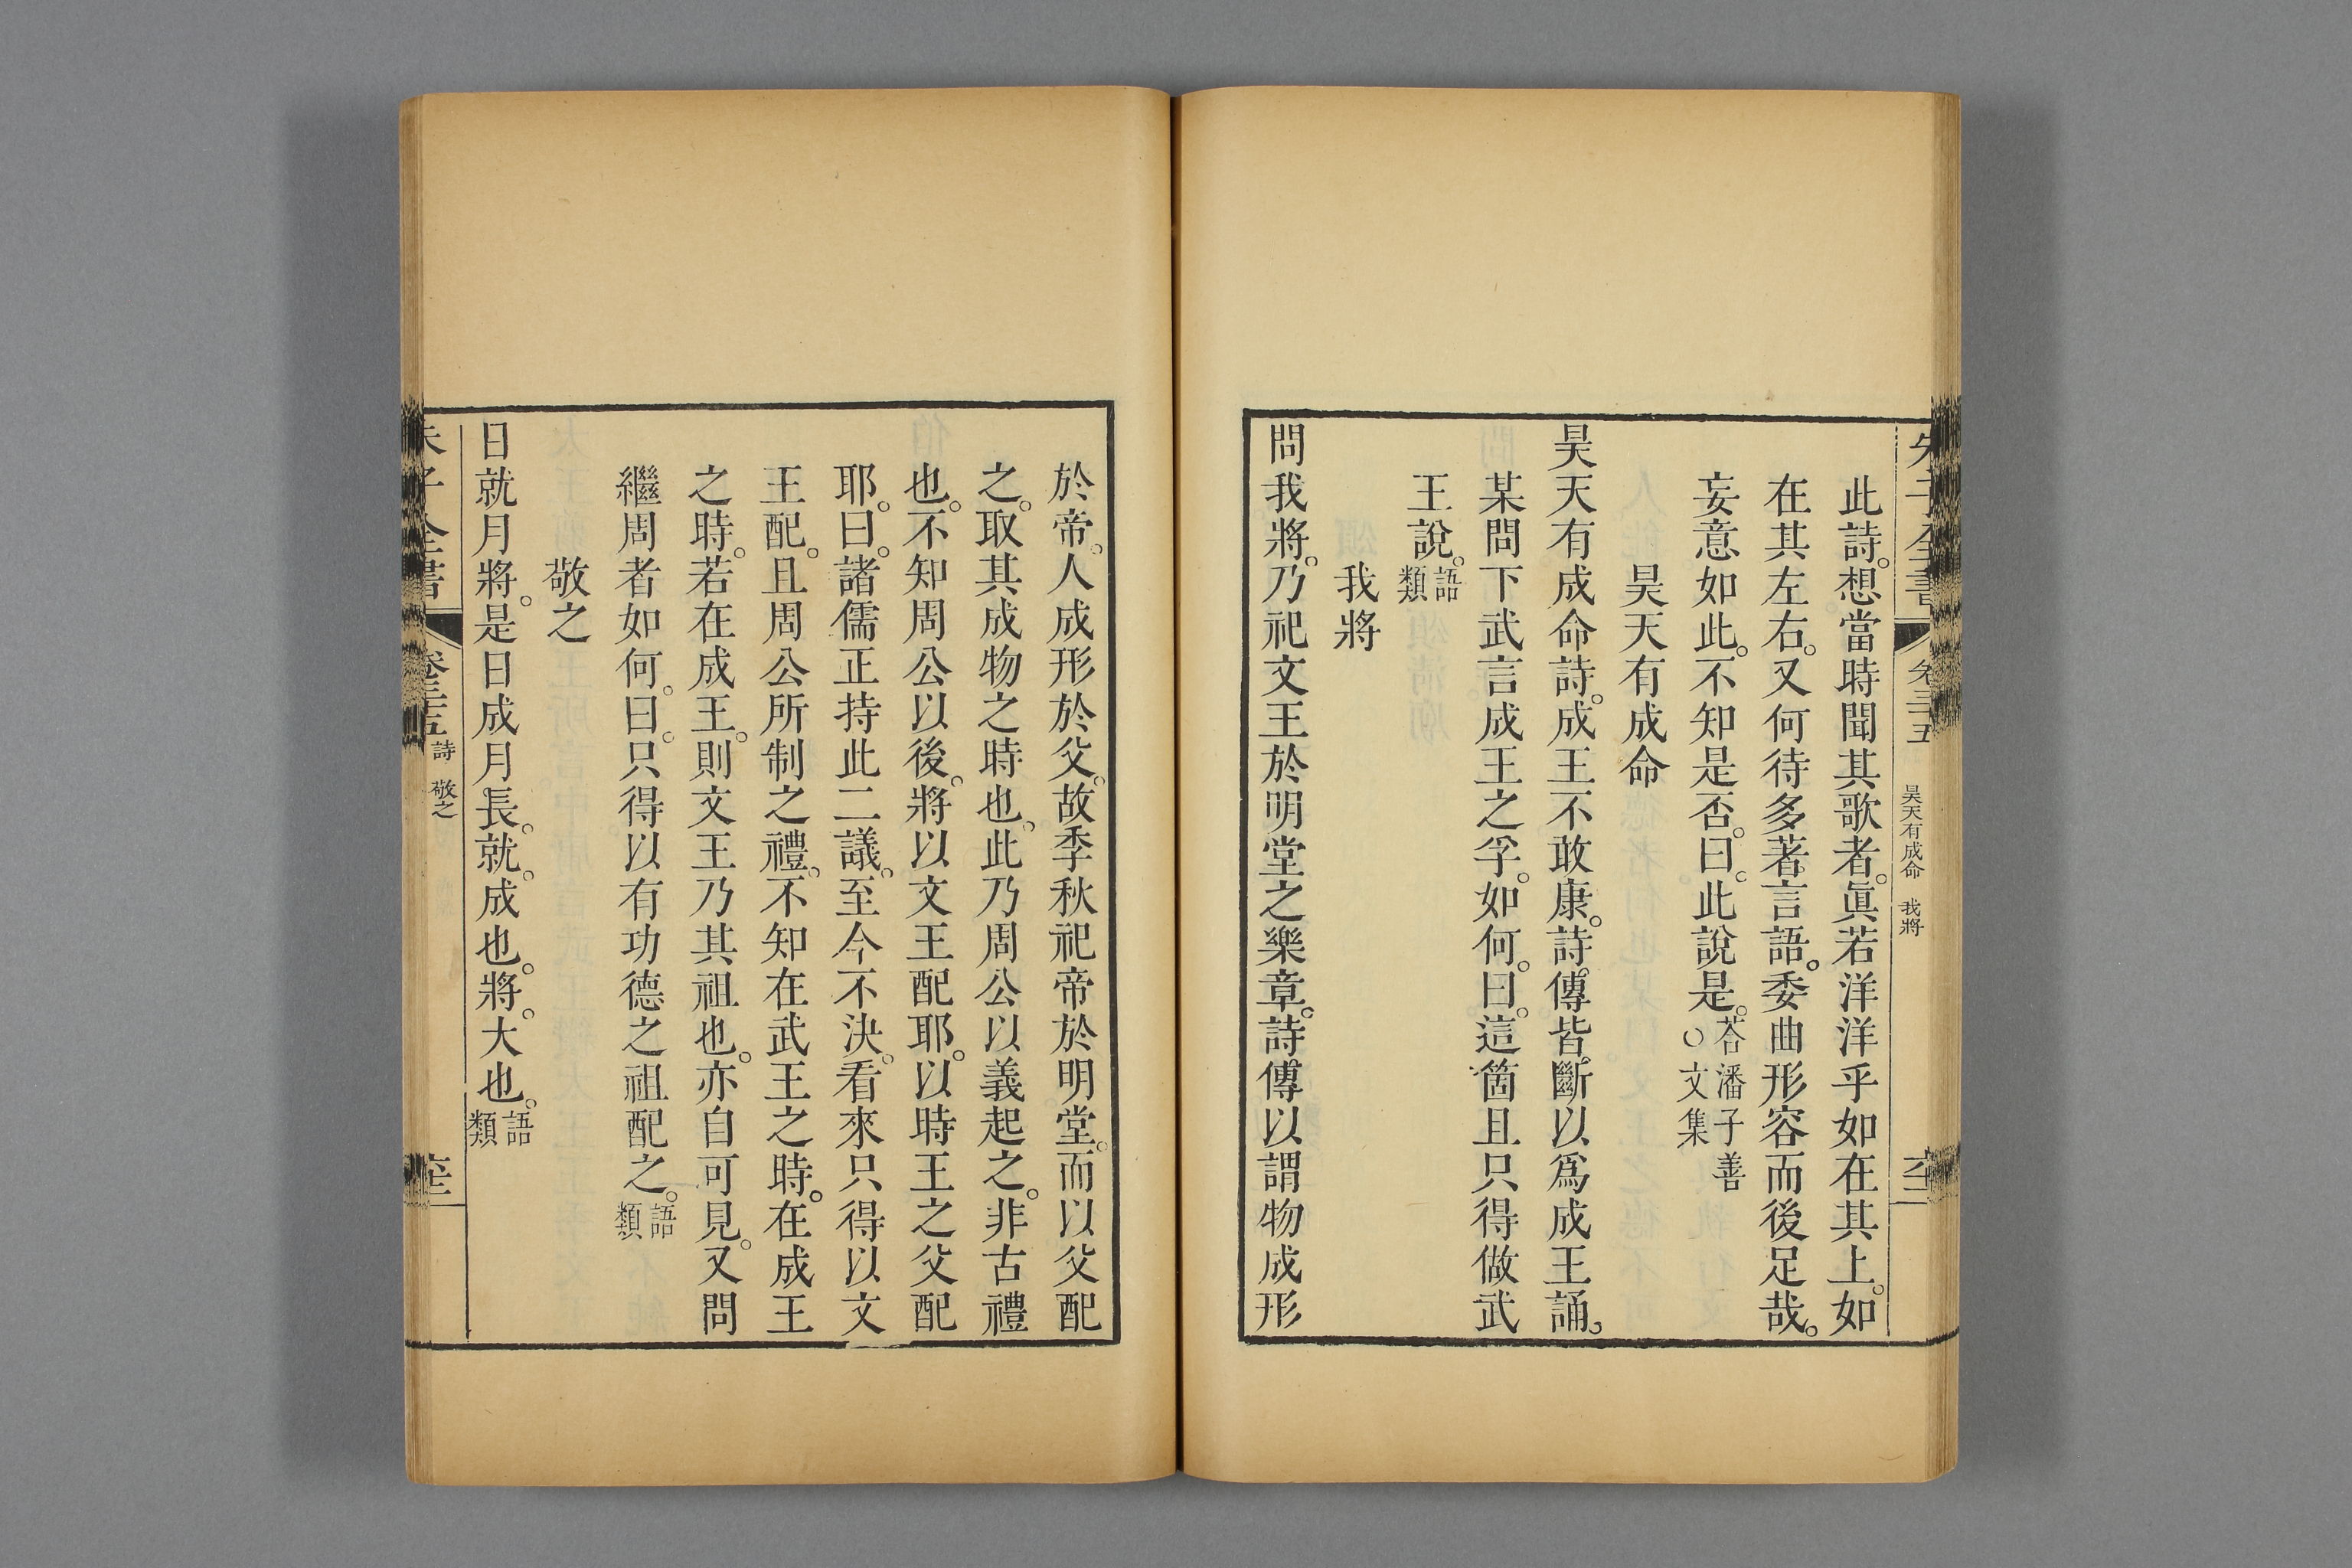 朱子全書 卷三十五 昊天有成命 我將
此詩。想當時聞其歌者。眞若洋洋乎如在其上。如
在其左右。又何待多著言語。委曲形容而後足哉。
妄意如此。不知是否。曰。此說是。荅潘子善○文集
昊天有成命
昊天有成命詩。成王不敢康。詩傳皆斷以爲成王誦。
某問下武言成王之孚。如何。曰。這箇且只得做武
王說。語類
我將
問我將。乃祀文王於明堂之樂章。詩傳以謂物成形
於帝。人成形於父。故季秋祀帝於明堂。而以父配
之。取其成物之時也。此乃周公以義起之。非古禮
也。不知周公以後。將以文王配耶。以時王之父配
耶。曰。諸儒正持此二議。至今不決。看來只得以文
王配。且周公所制之禮。不知在武王之時。在成王
之時。若在成王。則文王乃其祖也。亦自可見。又問
繼周者如何。曰。只得以有功德之祖配之。語類
敬之
日就月將。是日成月長。就。成也。將。大也。語類
朱子全書 卷三十五 詩 敬之